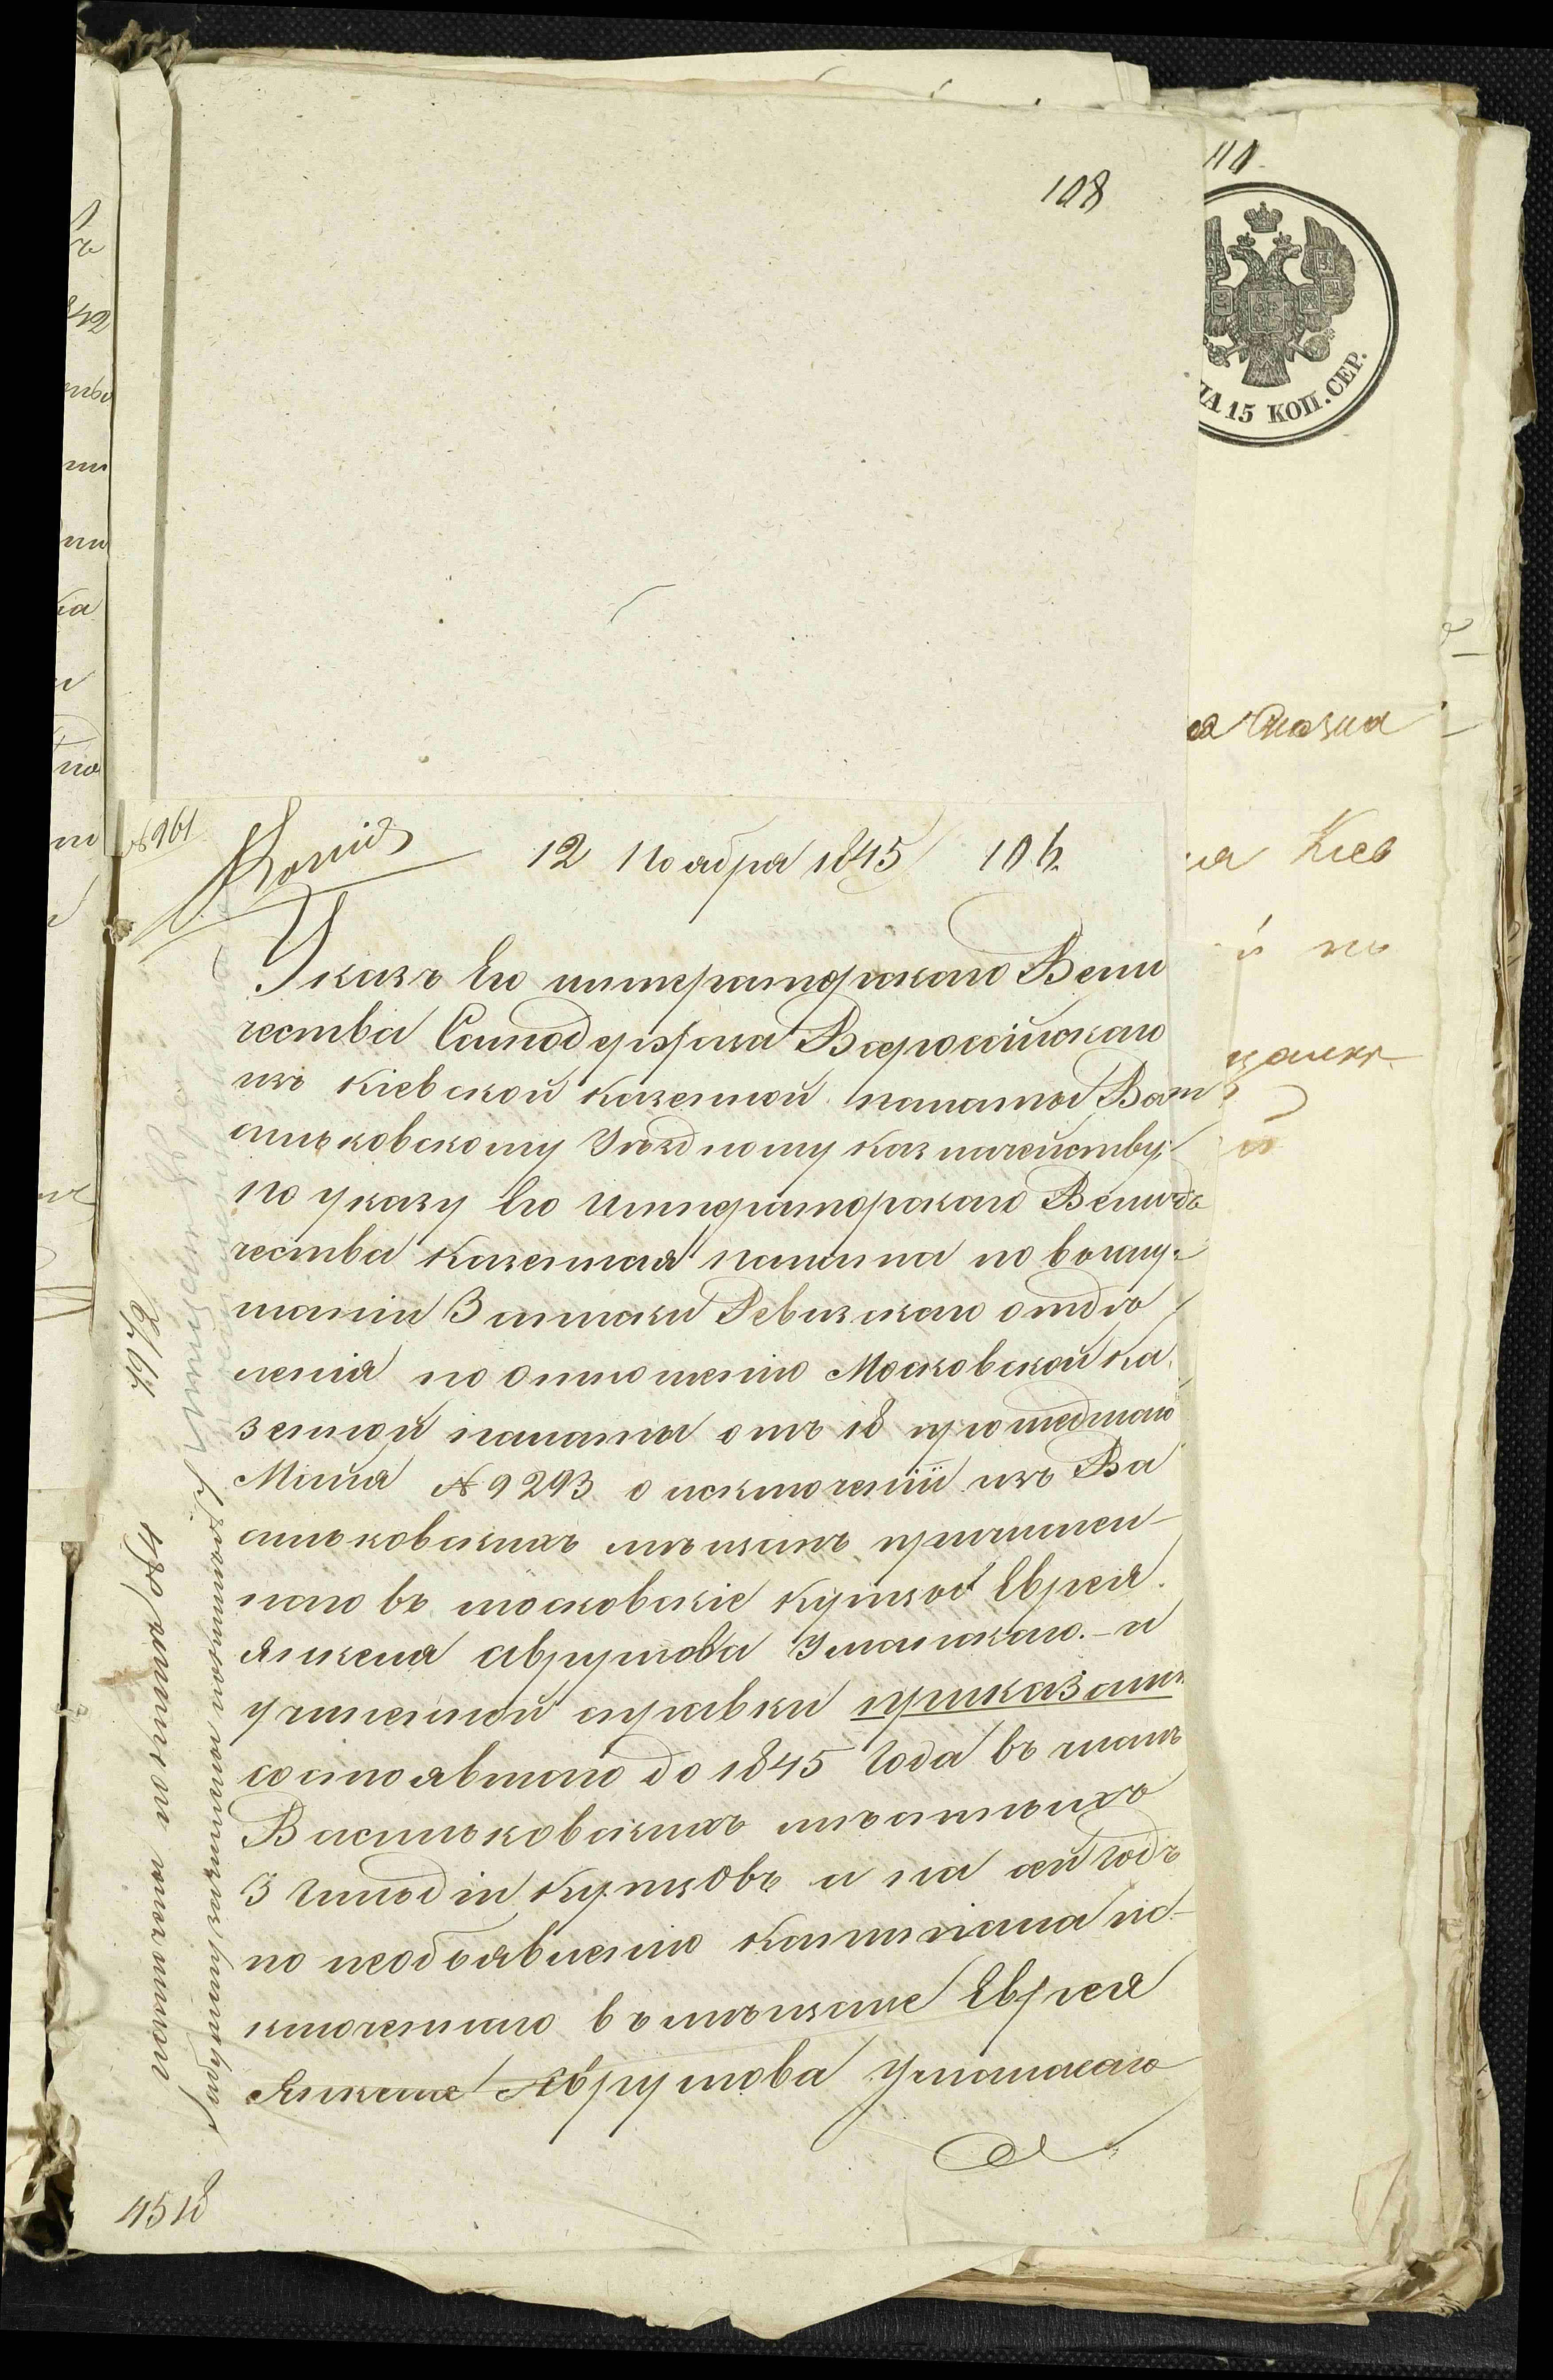 108
110
НА 15 КОП. СЕР.
№ 961
Копія
12 Ноября 1845
Указъ Его императорскаго Вели
чества Самодержца Всероссійскаго
изъ кіевской казенной палаты Ва
сильковскому Уѣздному казначейству.
По указу Его Императорскаго Вели
чества казенная палата по выслу
шаніи Записки Ревизскаго отдѣ
ленія по отношенію Московской ка
зенной палаты отъ 18 прошедшаго
Маія № 9293 о исключеніи изъ Ва
сильковскихъ мѣщанъ причислен-
наго въ московскіе купцы Еврея
Янкеля Аврумова Уманскаго.- и
учиненной справки приказали
состоявшаго до 1845 Года въ числѣ
Васильковскихъ мѣстныхъ
3 Гильдіи купцовъ а на сей годъ
по необъявленію капитала ис-
ключеннаго въ мѣщане Еврея
Янкеля Аврумова Уманскаго
ая Сказка
Кіев
4518